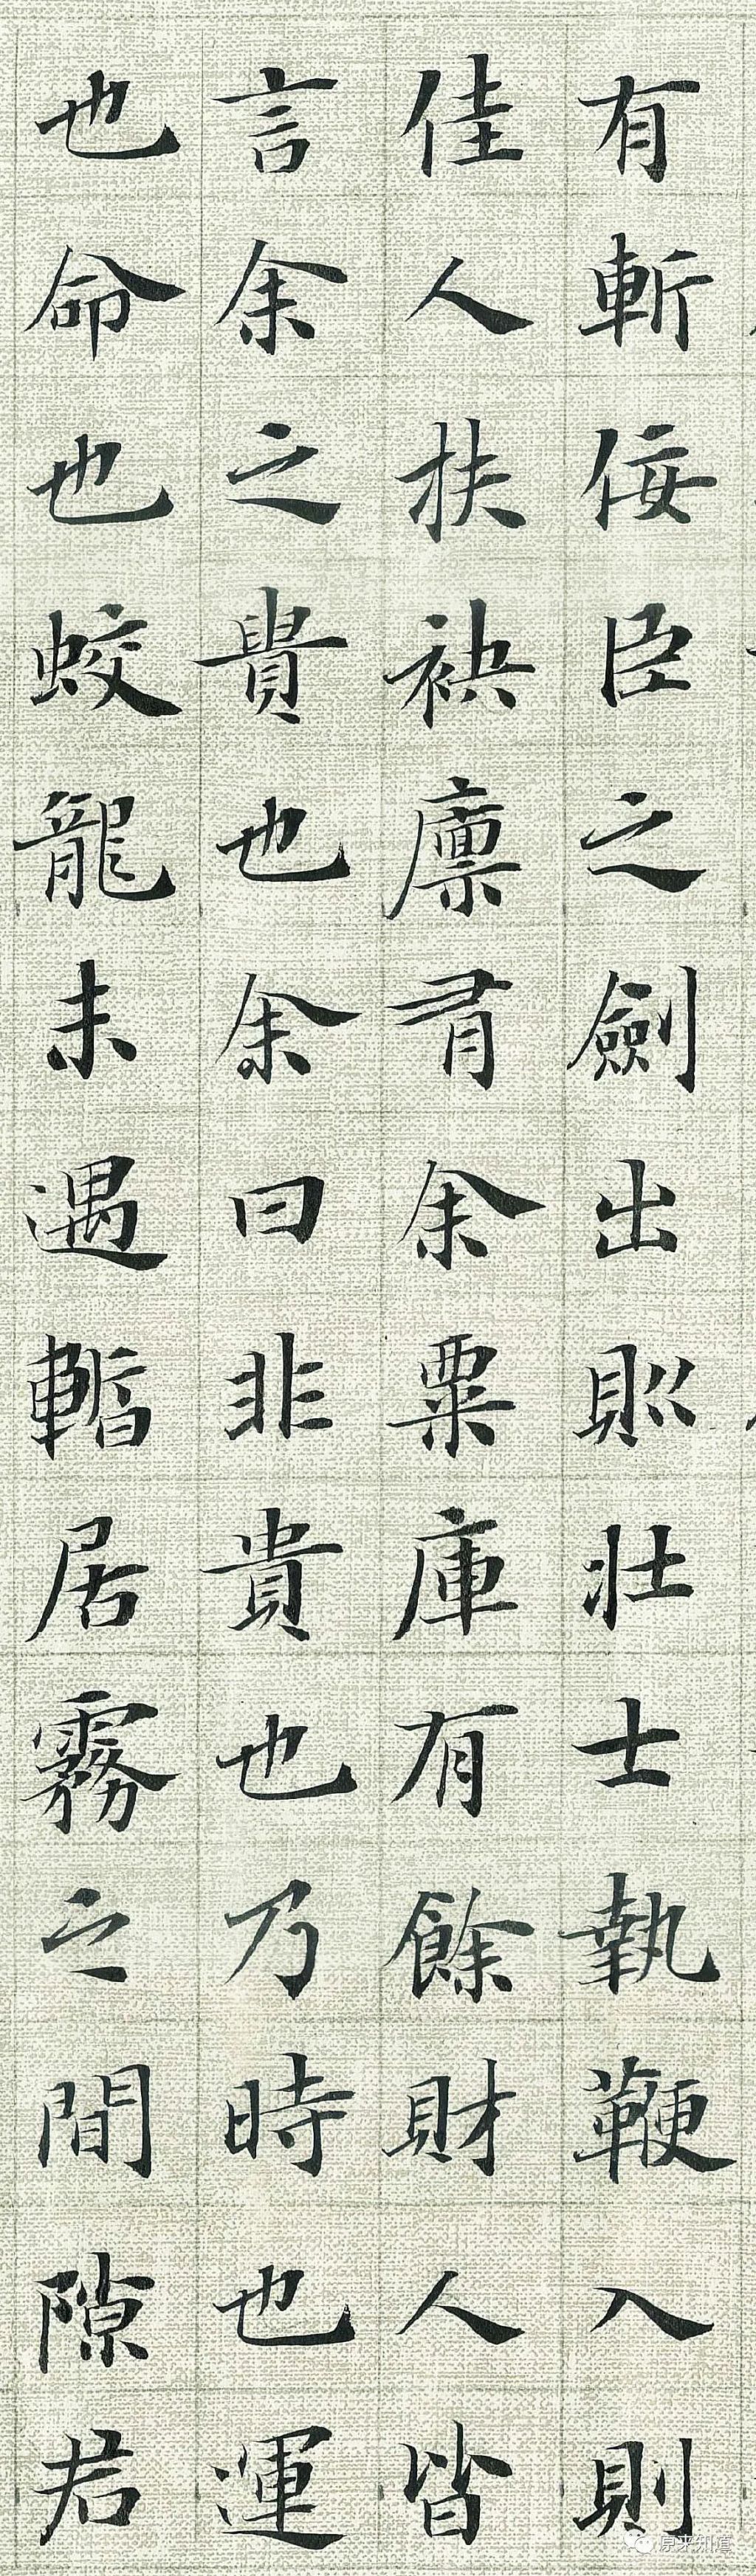 有斬佞臣之劍出則壯士執鞭入則
佳人扶袂廪有余粟庫有餘財人皆
言余之貴也余曰非貴也乃時也運
也命也蛟龍未遇暫居霧之間隙君
原来知道